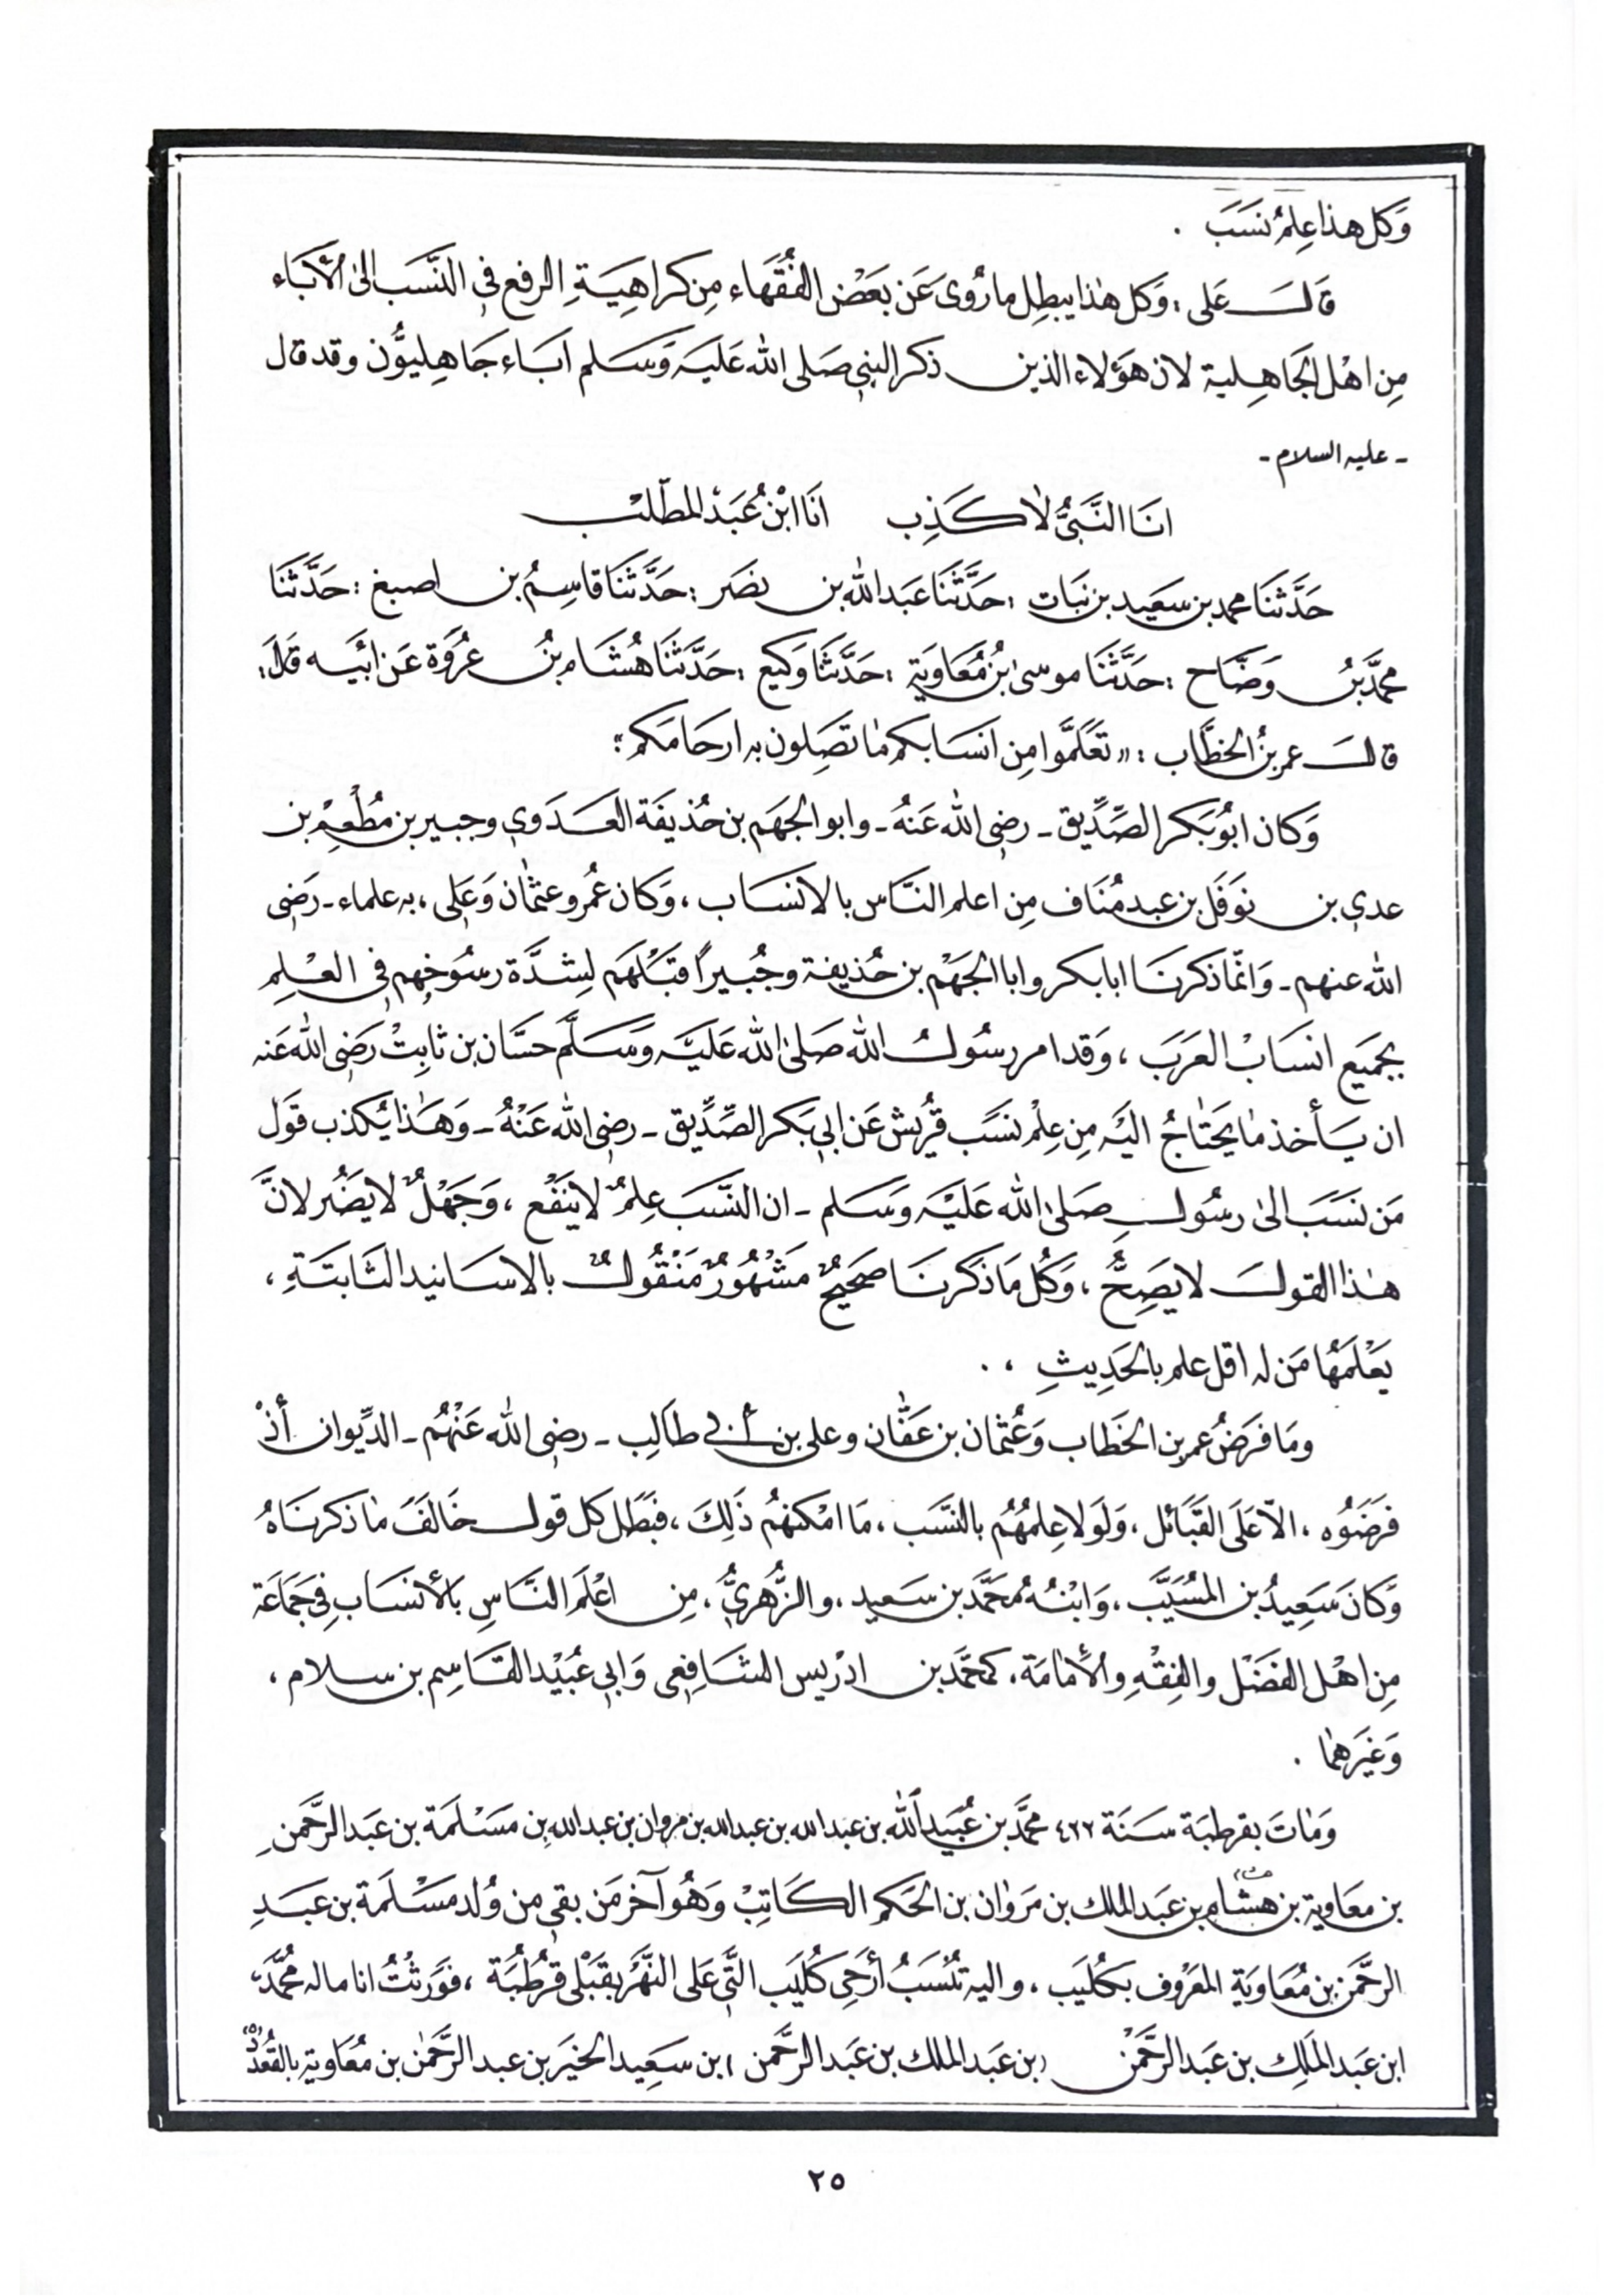 وَكل هذا عِلمُ نسَبَ .
قالَ عَلى : وَكل هٰذا يبطِل ما رُوى عَن بعَضْ الفُقَهاء مِن كراهِيَةِ الرفع فى النَّسَب الىٰ الأٰبَاء
مِن اهْل الجَاهِلية لان هَؤلاء الذين ذكر النبى صَلى الله عَليَه وَسَلم ابَاء جَاهِليوُّن وقد قال
- عليه السلام -
انَا النَّبىُّ لاٰ كَذِب انَا ابْنُ عُبَدْ المطّلبْ
حَدَّثنَا محمد بن سَعَيد بن نبَات : حَدَّثَنَا عَبَد الله بن نصَر : حَدَّثنَا قاسِمُ بن اصبغ : حَدَّثنَا
محمَّد بنُ وَضَّاح : حَدَّثَنَا موسىٰ بنُ مُعَاوَية : حَدَّثَنا وَكيع : حَدَّثنَا هُشَام بنُ عرُوَة عَن ابَيه قَالَ :
قالَ عمر بنُ الخطَّاب : " تعَلمَّوا مِن انسَابكم مٰا تصَِلون به ارحَامَكم :"
وَكان ابوُ بَكر الصِّدِّيق - رضى الله عَنهُ - وابو الجهَم بن حُذيفَة العَدَوي وجبير بن مُطْعِمْ بن
عدي بن نوَفَل بن عبد مُنَاف مِن اعلم النَّاس بالانسَاب ، وَكان عُمرُ وعثمٰان وَعَلِى ، به علماء - رَضِى
الله عنهم - وَانمّا ذكرنَا ابا بكر وابا الجَهَمْ بن حُذيفة وجُبيراً قبَلَهَم لِشدَّة رسُوخِهم فى العْلِم
بجمَيع انسَابْ العَرَبَ ، وَقد امر رسُولُ الله صَلىٰ الله عَليَه وَسَلمَّ حَسَّان بن ثابِتْ رَضِى الله عَنه
ان يَأخذ مٰا يَحتٰاجُ اليَه مِن عِلْم نسَبَ قرُيش عَن ابىِ بَكر الصِّدِّيق - رضِى الله عَنْهُ - وَهَٰذا يُكذب قوَل
مَن نسَبَ الىٰ رسُول صَلىٰ الله عَليَْه وَسَلم - ان النسَّبَ عِلمُ لاينَفْع ، وَجَهْلُ لا يضَُر لانَّ
هٰذا القولَ لا يصَِحُّ ، وَكُل مَا ذكَرنَا صَحَيحٌ مَشْهُورٌ مَنْقُولٌ بالاسَانيد الثَابتَةِ ،
يَعْلمَهُا مَن له اقل علم بالحَدِيثِ ، .
ومَا فرَضُ عمر بن الخَطاب وَعُثمَان بن عَفَّان وعلى بن أبى طاَلِب - رضِى الله عَنْهُم - الدِّيوان أذْ
فرَضَوُه ، الاّ عَلَى القَبَائل ، وَلَولا عِلمُهُم بالنسَّبَ ، مَا امْكنهُم ذَلِكَ ، فبَطل كل قول خَالفَ مٰا ذكرنَاهُ
وَكانَ سَعِيدُ بن المسُيَّب ، وَابْنُه مُحَمَّد بن سَعيد ، والزُّهريُّ ، مِن اعْلمَ النَّاسِ بالأنسَاب فِى جَمَاعَة
مِن اهْل الفضَْل والفِقْهِ والأمٰامَة ، كمحَّمَد بن ادْريس الشَافِعِى وَابى عُبَيْد القَاسِم بن سلام ،
وَغيَرهمٰا .
وَمٰاتَ بقرطبَة سَنَة ٤٢٢ محَّمد بن عُبَيد ألله بن عبد الله بن عبد الله بن مروان بن عبد الله بن مَسْلَمَة بن عَبَد الرَّحمَن
بن معَاوية بن هشَام بن عَبَد الملك بن مَروٰان بن الحَكم الكَاتِبْ وَهُو آخر مَن بقى من وُلد مسْلمَة بن عَبَدِ
الرحَّمَن بن مُعَاوَية المعَرُوف بكُليَب ، واليه تنُسَبُ أرَحِى كُليَب التَّى عَلى النَّهَر بقَبْلى قرُطُبَة ، فوَرثتُ انا ماله محُمَّدَ
ابن عَبَد المَلِك بن عَبَد الرَّحَمْن (بن عَبَد الملك بن عَبَد الرَّحمَن) ابن سَعِيد الخيَر بن عبد الرَّحمٰن بن مُعَاوية بالقُعْدُدْ
٢٥